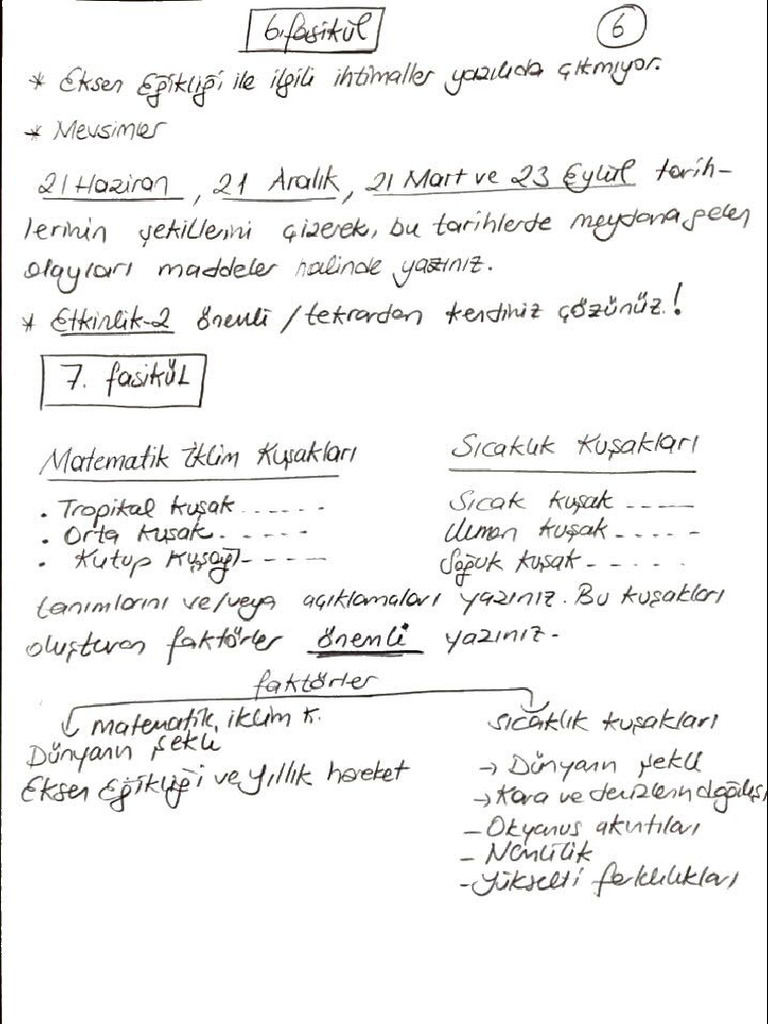 6. fasikül
6
* Eksen Eğikliği ile ilgili ihtimaller yazılıda çıkmıyor.
* Mevsimler
21 Haziran, 21 Aralık, 21 Mart ve 23 Eylül tarih-
lerinin şekillerini çizerek, bu tarihlerde meydana gelen
olayları maddeler halinde yazınız.
* Etkinlik-2 önemli / tekrardan kendiniz çözünüz.!
7. fasikül
Matematik İklim Kuşakları
Sıcaklık Kuşakları
. Tropikal kuşak ------
Sıcak kuşak -----
. Orta kuşak. -----
Ilıman kuşak -----
. Kutup Kuşağı -----
Soğuk kuşak -----
tanımlarını ve/veya açıklamaları yazınız. Bu kuşakları
oluşturan faktörler önemli yazınız.
faktörler
matematik, iklim k.
Dünyanın şekli
Eksen Eğikliği ve yıllık hareket
sıcaklık kuşakları
→ Dünyanın şekli
→ Kara ve denizlerin dağılışı
- Okyanus akıntıları
- Nemlilik
- Yükselti farklılıkları